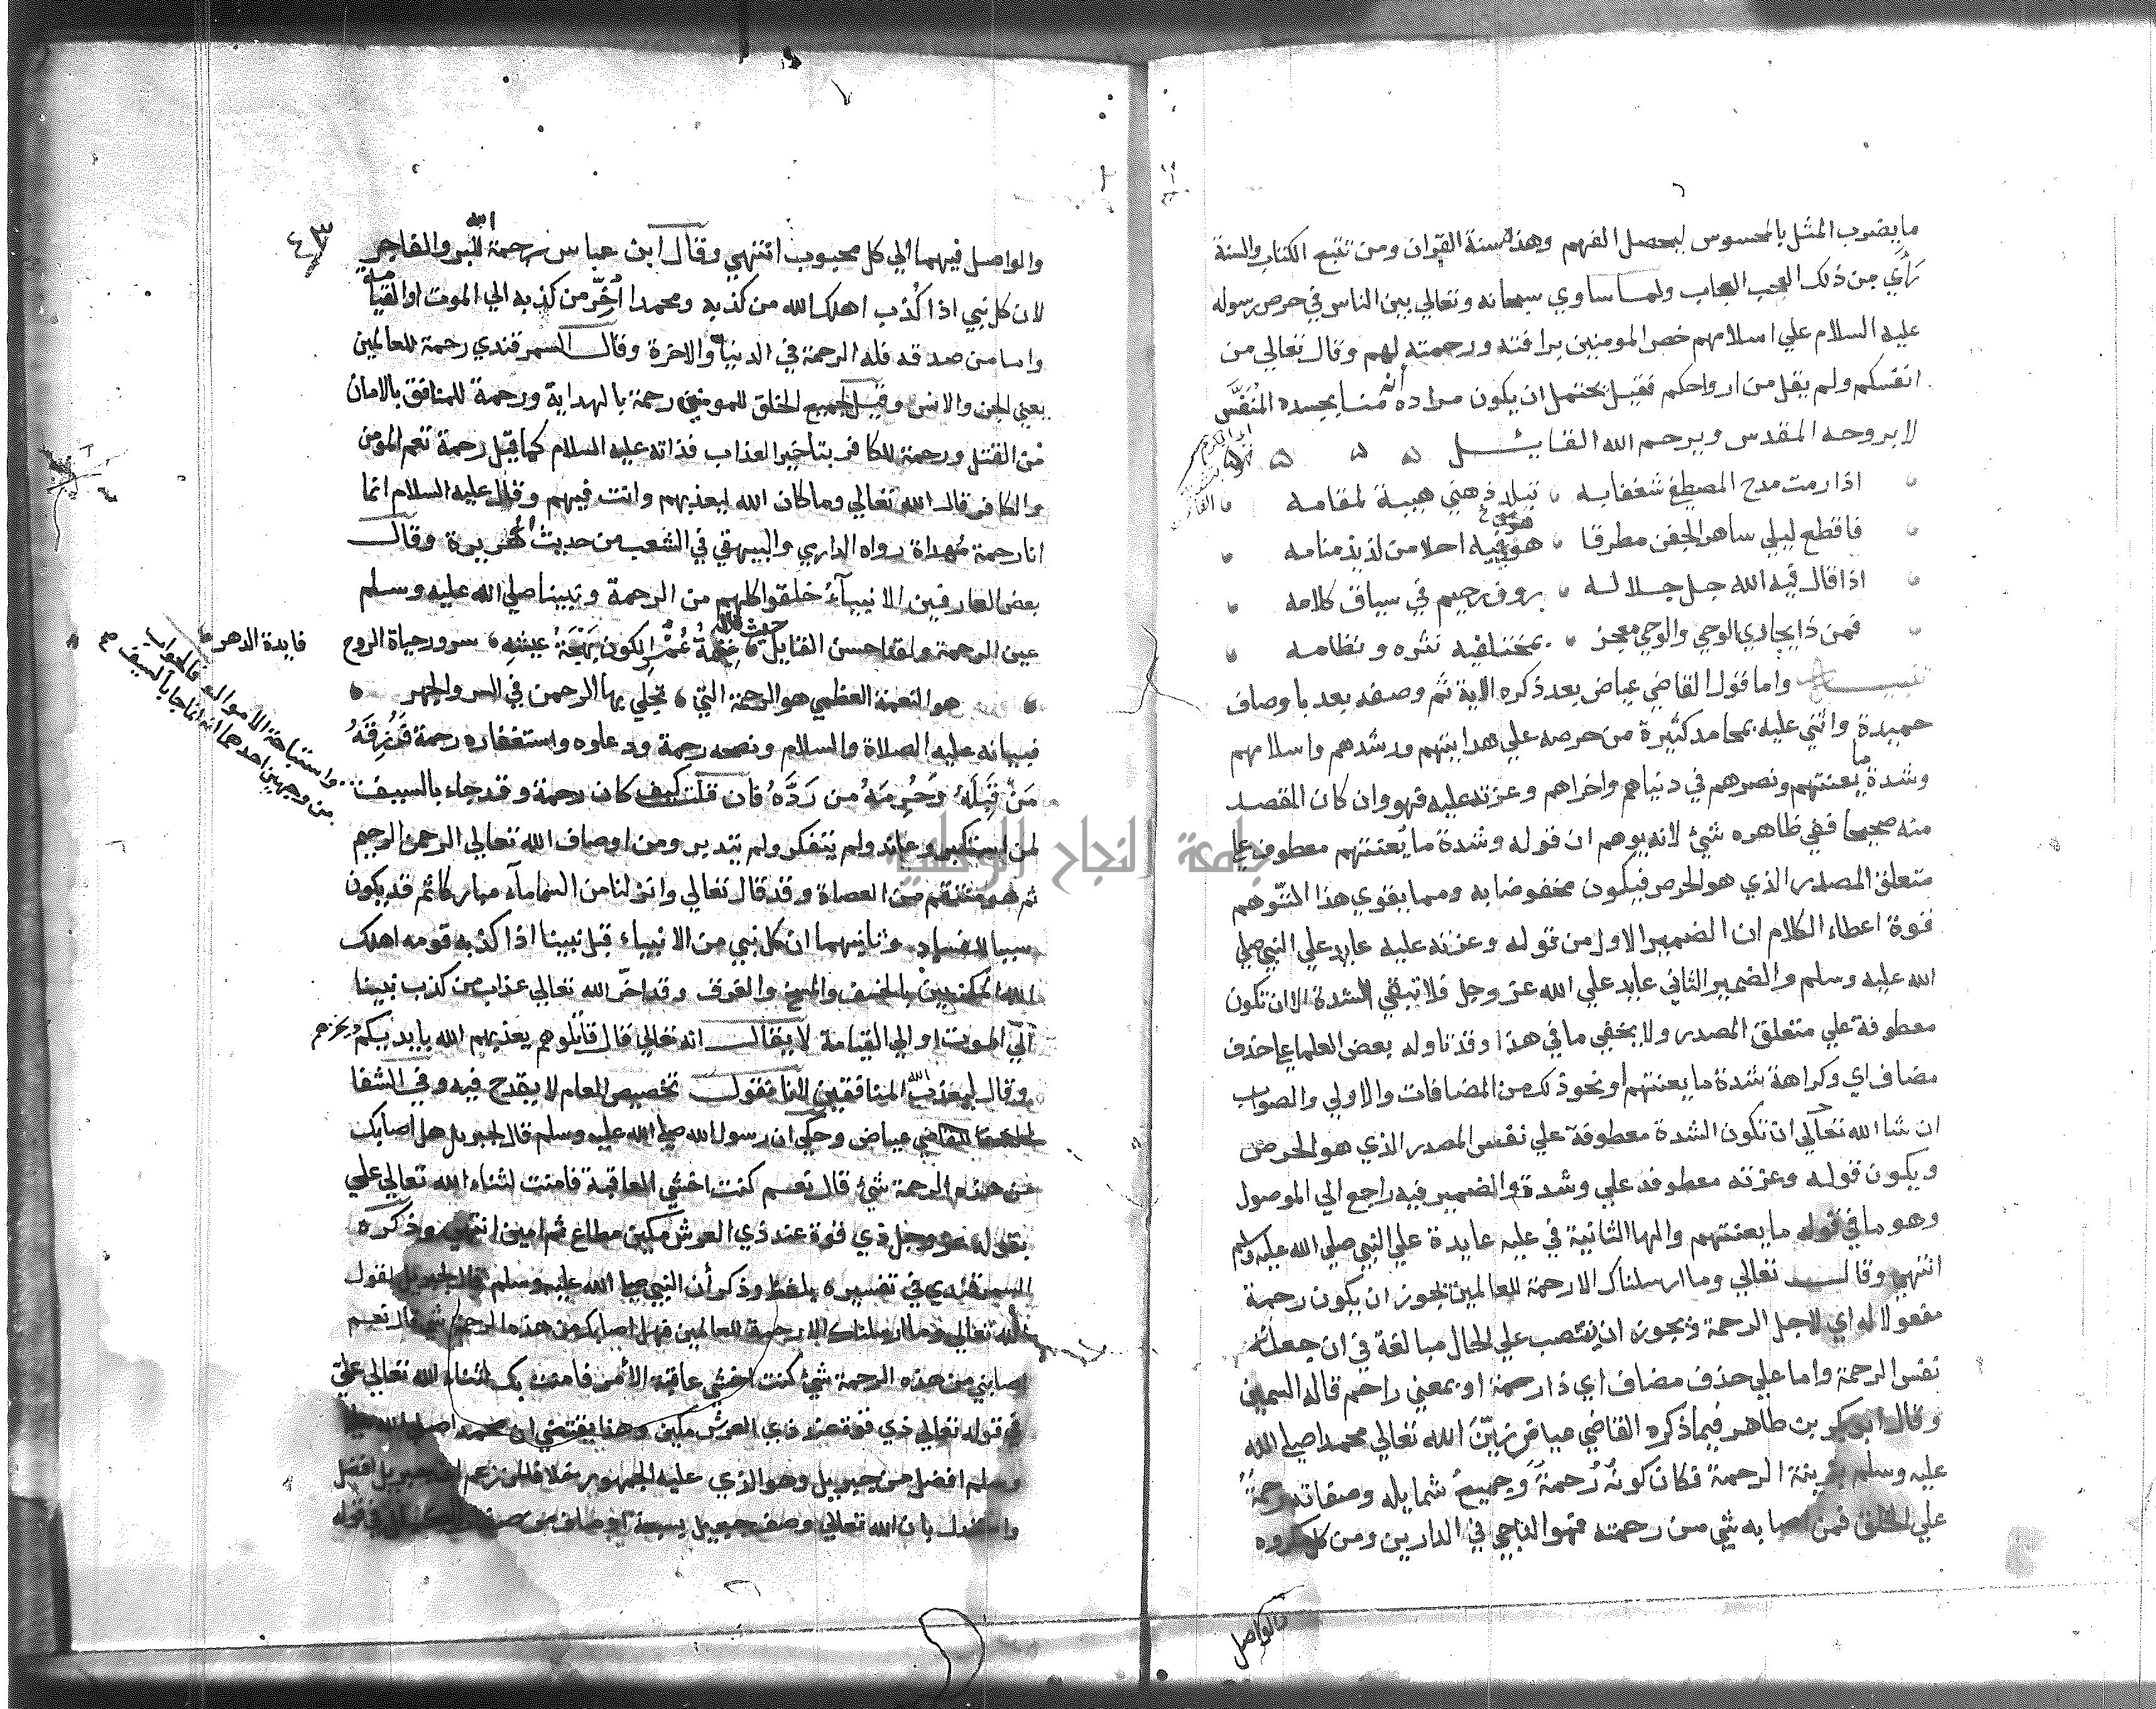 ما يضرب المثل بالمحسوس ليحصل الفهم وهذه سنة القران ومن تتبع الكتاب والسنة
رأي من ذلك العجب العجاب ولما ساوي سبحانه وتعالي بين الناس في حرص رسوله
عليه السلام علي اسلامهم خص المومنين برافته ورحمته لهم وقال تعالي من
انفسكم ولم يقل من ارواحكم فقيل يحتمل ان يكون مراده أنه منا بجسده المنفس
لا بروحه المقدس ويرحم الله القايل
اذا رمت مدح المصطفي شغفا به تبلد ذهني هيبة لمقامه
فاقطع ليلي ساهر الجفن مطرقا هوي فيه احلا من لذيذ منامه
اذا قال فيه الله جل جلاله روف رحيم في سياق كلامه
فمن ذا يجاري الوحي والوحي معجز بمختلفيه نثره ونظامه
تنبيه واما قول القاضي عياض بعد ذكره الاية ثم وصفه بعد باوصاف
حميدة واثني عليه بمحامد كثيرة من حرصه علي هدايتهم ورشدهم واسلامهم
وشدة ما يعنتهم ونصرهم في دنياهم واخراهم وعزته عليه فهو وان كان المقصد
منه صحيحا ففي ظاهره شيئ لانه يوهم ان قوله وشدة ما يعنتهم معطوف علي
متعلق المصدر الذي هو الحرص فيكون مخفوضا به ومما يقوي هذا التوهم
قوة اعطاء الكلام ان الضمير الاول من قوله وعزته عليه عايد علي النبي صلي
الله عليه وسلم والضمير الثاني عايد علي الله عز وجل فلا تبقي الشدة الا ان تكون
معطوفة علي متعلق المصدر ولا يخفي ما في هذا وقد تاوله بعض العلما علي حذف
مضاف اي وكراهة شدة ما يعنتهم او نحو ذلك من المضافات والاولي والصواب
ان شا الله تعالي ان تكون الشدة معطوفة علي نفس المصدر الذي هو الحرص
ويكون قوله وعزته معطوف علي وشدة والضمير فيه راجع الي الموصول
وهو ما في قوله ما يعنتهم والها الثانية في عليه عايدة علي النبي صلي الله عليه وسلم
انتهي وقال تعالي وما ارسلناك الا رحمة للعالمين يجوز ان يكون رحمة
مفعولا له اي لاجل الرحمة ويجوز ان ينتصب علي الحال مبالغة في ان جعله
نفس الرحمة واما علي حذف مضاف اي ذا رحمة او بمعني راحم قاله السمين
وقال ابو بكر بن طاهر فيما ذكره القاضي عياض زين الله تعالي محمدا صلي الله
عليه وسلم بزينة الرحمة فكان كونه رحمة وجميع شمايله وصفاته رحمة
علي الخلق فمن اصابه شئ من رحمته فهو الناجي في الدارين ومن كل مكروه
والواصل
٤٣
والواصل فيهما الي كل محبوب انتهي وقال ابن عباس رحمة للبر والفاجر
لان كل نبي اذا كُذب اهلك الله من كذبه ومحمدا أُخّر من كذبه الي الموت او القيامة
واما من صدقه فله الرحمة في الدنيا والاخرة وقال السمرقندي رحمة للعالمين
يعني الجن والانس وقيل لجميع الخلق للمومنين رحمة بالهداية ورحمة للمنافق بالامان
من القتل ورحمة للكافر بتاخير العذاب فذاته عليه السلام كما قيل رحمة تعم المومن
والكافر قال الله تعالي وما كان الله ليعذبهم وانت فيهم وقال عليه السلام انما
انا رحمة مهداة رواه الداري والبيهقي في الشعب من حديث ابي هريرة وقال
بعض العارفين الانبيآء خلقوا كلهم من الرحمة ونبينا صلي الله عليه وسلم
عين الرحمة ولقد احسن القايل حيث قال غنيمة عُمْر الكون بهجة عيشه سرور حياة الروح فايدة الدهر
هو النعمة العظمي هو الرحمة التي تجلي بها الرحمن في السر والجهر
فبيانه عليه الصلاة والسلام ونصحه رحمة ودعاوه واستغفاره رحمة فرُزِقَهُ
مَنْ قَبِلَهُ وحُرِمَهُ من رَدَّهُ فان قلت كيف كان رحمة وقد جاء بالسيف
واستباحة الاموال فالجواب
من وجهين احدهما انه انما جا بالسيف
لمن استكبر وعاند ولم يتفكر ولم يتدبر ومن اوصاف الله تعالي الرحمن الرحيم
ثم هو منتقم من العصاة وقد قال تعالي وانزلنا من السما مآء مباركا ثم قد يكون
سببا للفساد وثانيهما ان كل نبي من الانبياء قبل نبينا اذا كذبه قومه اهلك
الله المكذبين بالخسف والمسخ والغرق وقد اخر الله تعالي عذاب من كذب نبينا
الي الموت او الي القيامة لا يقال انه تعالي قال قاتلوهم يعذبهم الله بايديكم ويخزهم
وقال ليعذب الله المنافقين لانا نقول تخصيص العام لا يقدح فيه وفي الشفا
للقاضي عياض وحكي ان رسول الله صلي الله عليه وسلم قال لجبريل هل اصابك
من هذه الرحمة شئ قال نعم كنت اخشي العاقبة فامنت لثناء الله تعالي علي
بقوله عز وجل ذي قوة عند ذي العرش مكين مطاع ثم امين انتهي وذكره
السمرقندي في تفسيره بلفظ وذكر أن النبي صلي الله عليه وسلم قال لجبريل يقول
الله تعالي وما ارسلناك الا رحمة للعالمين فهل اصابك من هذه الرحمة شئ قال نعم
اصابني من هذه الرحمة شئ كنت اخشي عاقبة الأمر فامنت بك لثناء الله تعالي علي
في قوله تعالي ذي قوة عند ذي العرش مكين وهذا يقتضي ان محمدا صلي الله عليه
وسلم افضل من جبريل وهو الذي عليه الجمهور خلافا لمن زعم ان جبريل افضل
واستدل بان الله تعالي وصف جبريل بسبعة اوصاف من صفات الكمال في قوله
جامعة النجاح الوطنية